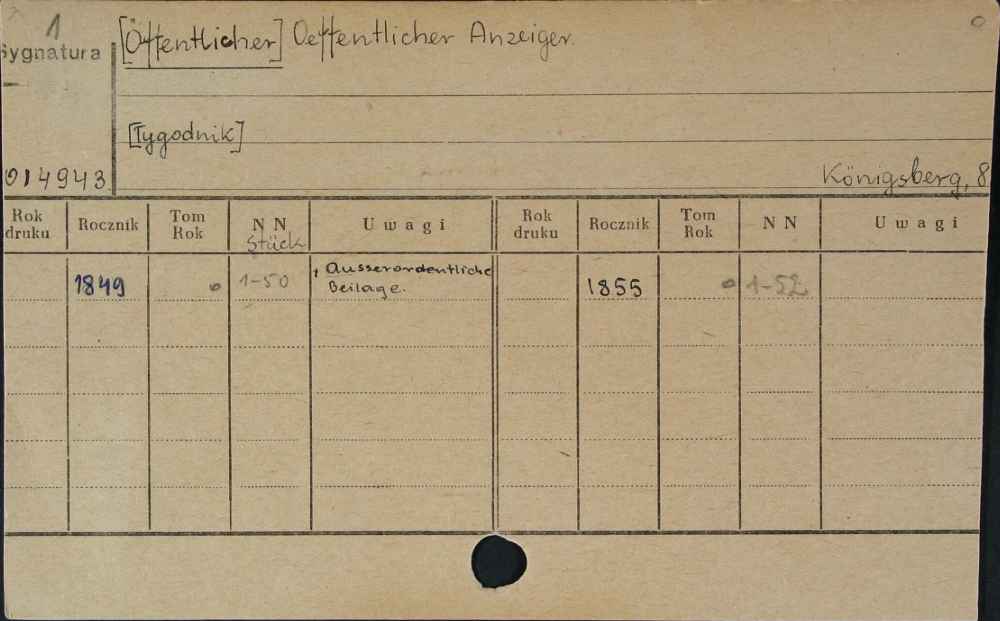 1
Sygnatura
[Öffentlicher] Oeffentlicher Anzeiger.
[Tygodnik]
014943
Königsberg, 8
Rok druku Rocznik Tom Rok N N Stück Uwagi Rok druku Rocznik Tom Rok N N Uwagi
1849 1-50 , Ausserordentliche 1855 1-52
Beilage.